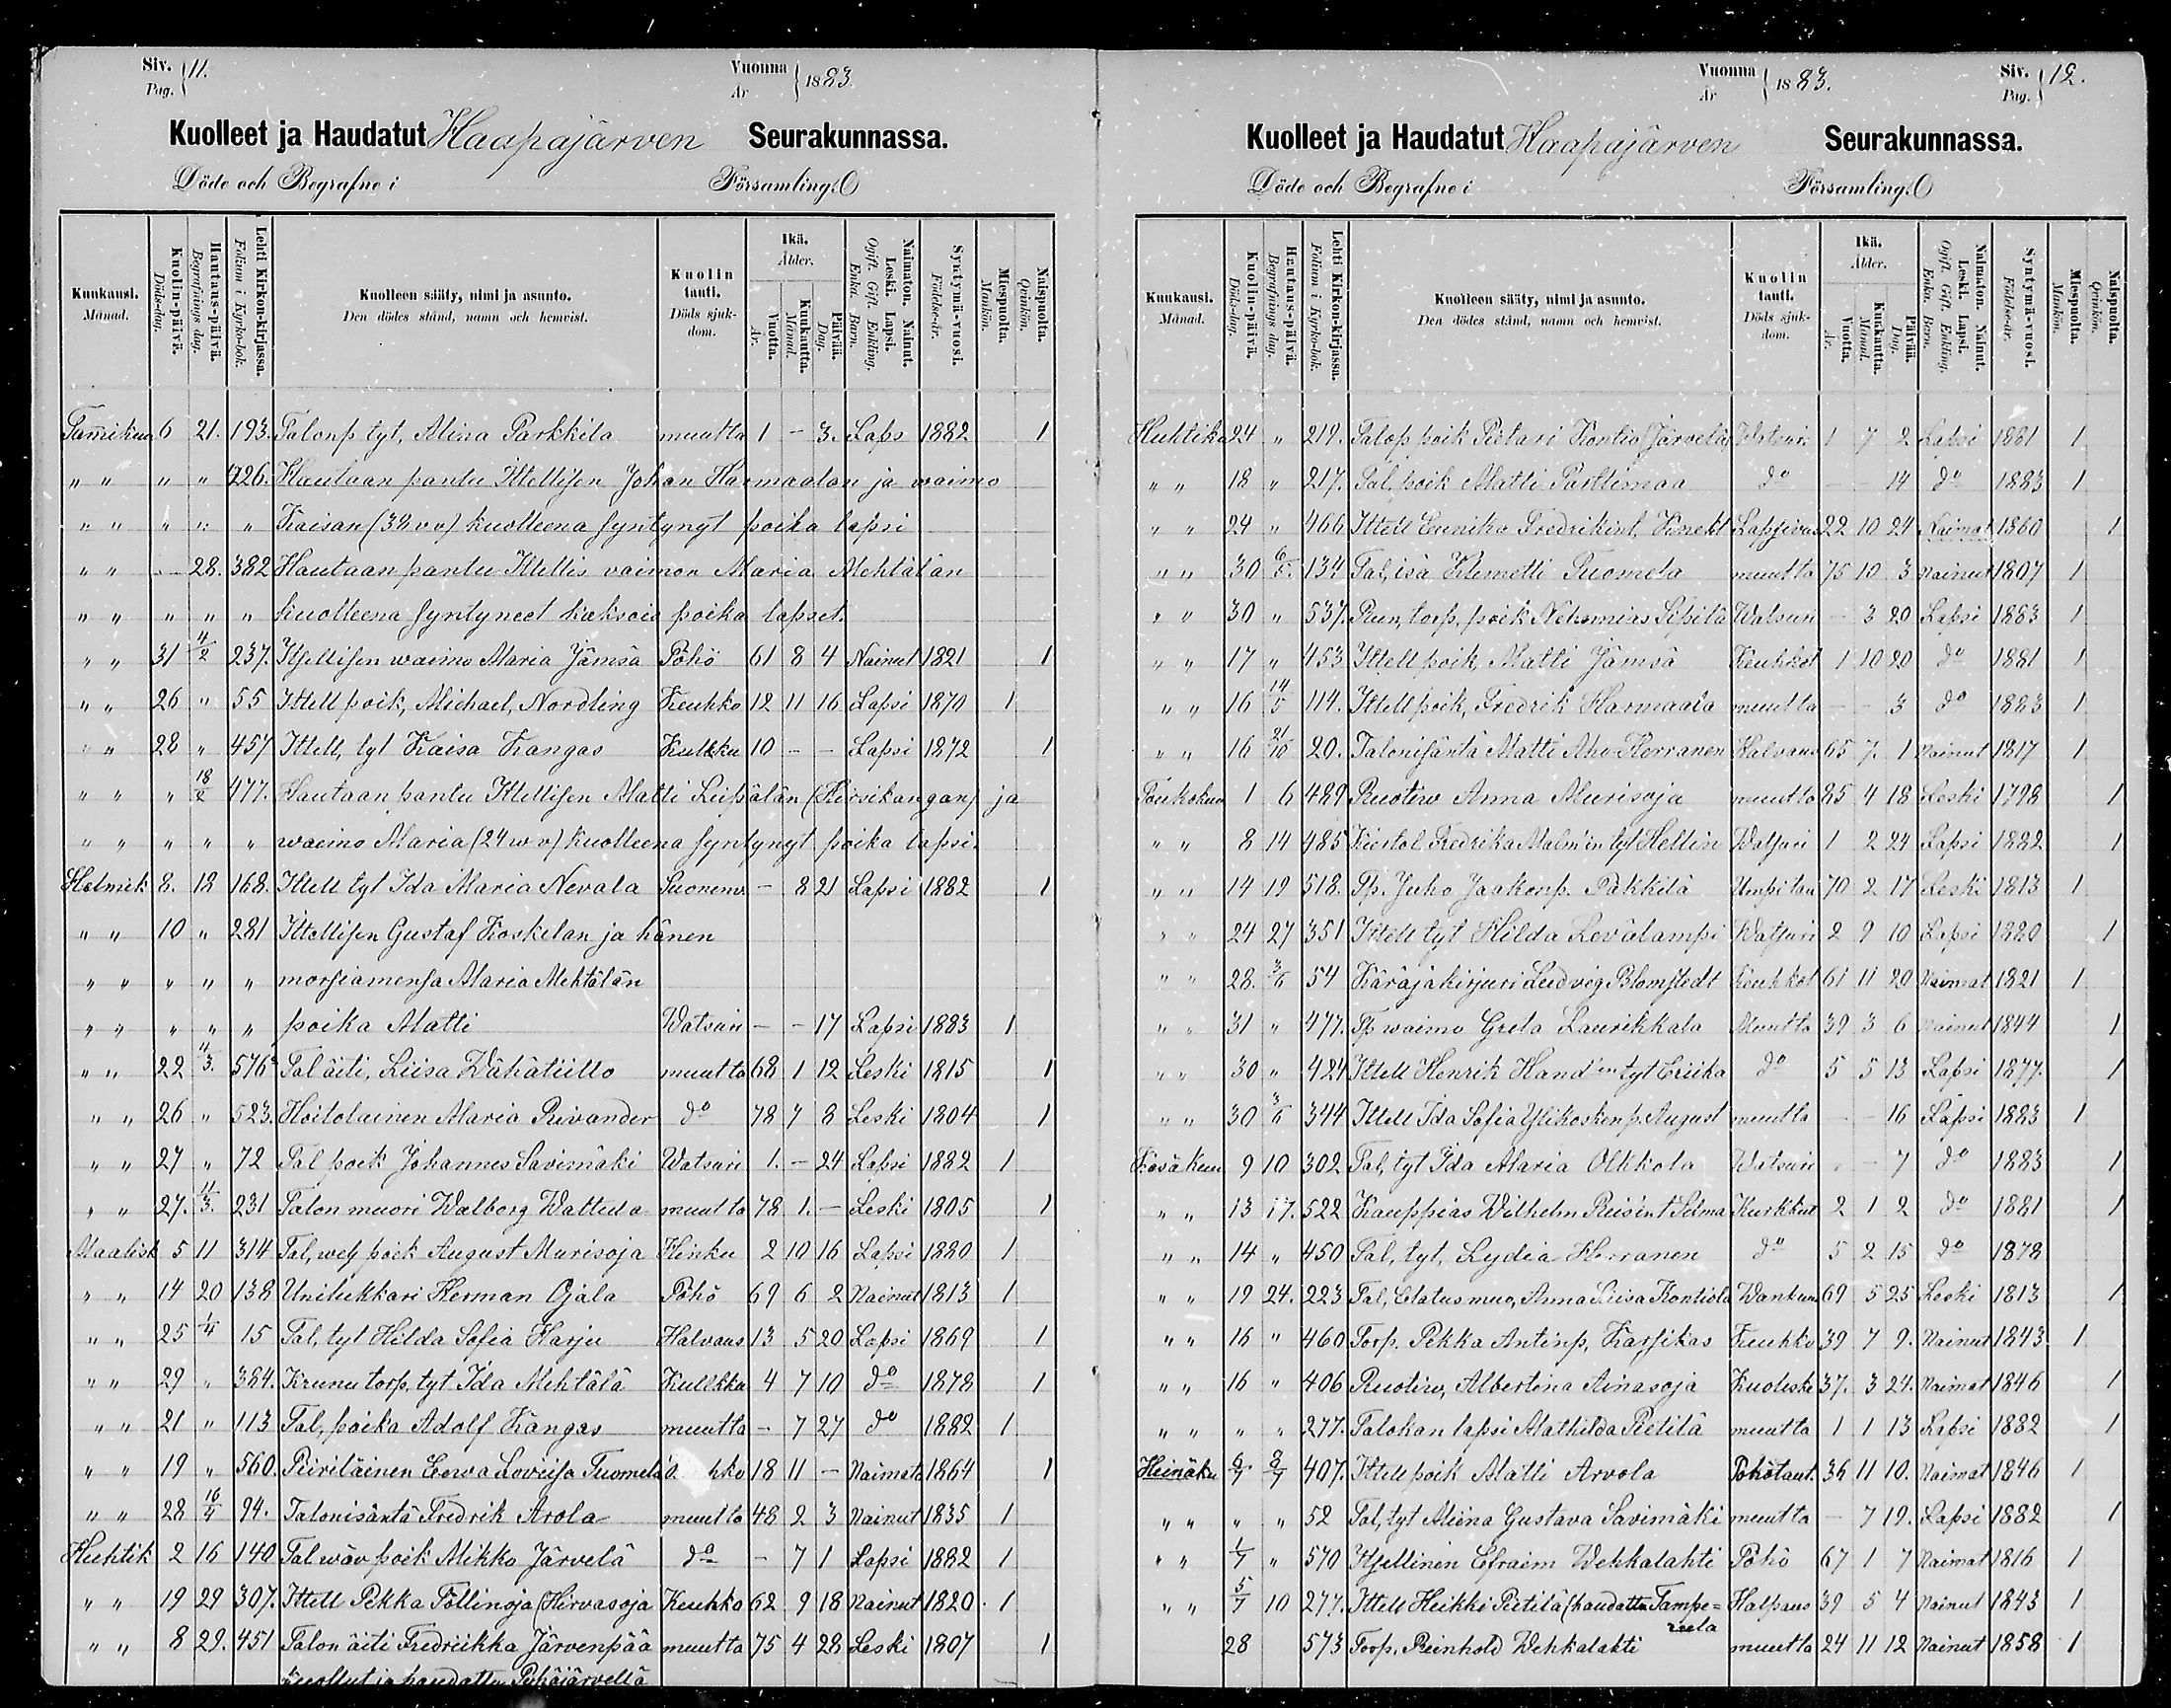 Siv. Pag. 11. Vuonna År 1883
Kuolleet ja Haudatut Haapajärven Seurakunnassa.
Döde och Begrafne i Församling.
Kuukausi. Månad. Kuolin-päivä. Döds-dag. Hautaus-päivä. Begrafnings dag. Lehti Kirkon-kirjassa. Folium i Kyrko-bok. Kuolleen sääty, nimi ja asunto. Den dödes stånd, namn och hemvist. Kuolin tauti. Döds sjukdom. Ikä. Ålder. Vuotta. År. Kuukautta. Månad. Päivää. Dag. Naimaton. Nainut. Leski. Lapsi. Ogift. Gift. Enkling. Enka. Barn. Syntymä-vuosi. Födelse-år. Miespuolta. Mankön. Naispuolta. Qvinkön.
Tamikuu 6 21. 193. Talonp tyt, Alina Parkkila muutta 1 - 3. Laps 1882 1
" " " " 226. Hautaan pantu Ittellisen Johan Harmaalan ja waimo
" " " " " Kaisan (38 v v) kuolleena syntynyt poika lapsi
" " - 28. 382 Hautaan pantu Ittellis vaimon Maria Mehtälän
" " " " " kuolleena syntyneet kaksois poika lapset.
" " 31 4/2 237. Itsellisen waimo Maria Jämsä Pöhö 61 8 4 Nainut 1821 1
" " 26 " 55 Ittell poik, Michael, Nordling Keuhko 12 11 16 Lapsi 1870 1
" " 28 " 457 Ittell, tyt Kaisa Kangas Kulkku 10 - - Lapsi 1872 1
" " " 18/2 477. Hautaan pantu Ittellisen Matti Leipälän (Hirvikangan) ja
" " " " " waimo Maria (24 w v) kuolleena syntynyt poika lapsi.
Helmik 8. 18 168. Ittell tyt Ida Maria Nevala Suonenv. - 8 21 Lapsi 1882 1
" " 10 " 281 Ittellisen Gustaf Koskelan ja hänen
" " " " " morsiamensa Maria Mehtälän
" " " " " poika Matti Watsuri - - 17 Lapsi 1883 1
" " 22 4/3. 576 Tal äiti, Liisa Wähätiitto muutta 68 1 12 Leski 1815 1
" " 26 " 523. Hoitolainen Maria Rivander do 78 7 8 Leski 1804 1
" " 27 " 72 Tal poik Johannes Savimäki Watsuri 1. - 24 Lapsi 1882 1
" " 27. 4/3. 231 Talon muori Walborg Wattula muutta 78 1. - Leski 1805 1
Maalisk 5 11 314 Tal, welj poik August Murisoja Hinku 2 10 16 Lapsi 1880 1
" " 14 20 138 Unilukkari Herman Ojala Pöhö 69 6 2 Nainut 1813 1
" " 25 1/4 15 Tal, tyt Hilda Sofia Karju Halvaus 13 5 20 Lapsi 1869 1
" " 29 " 384. Krunu torp, tyt Ida Mehtälä Kullkku 4 7 10 do 1878 1
" " 21 " 113 Tal, poika Adolf Kangas muutta - 7 27 do 1882 1
" " 19 " 560. Piiriläinen Eewa Loviisa Tuomela 18 11 - Naimato 1864 1
" " 28 16/4 94. Talonisäntä Fredrik Arola muutta 48 2 3 Nainut 1835 1
Huhtik 2 16 140 Tal wäv poik Mikko Järvelä do - 7 1 Lapsi 1882 1
" " 19 29 307. Ittell Pekka Töllinoja (Hirvasoja Keuhko 62 9 18 Nainut 1820. 1
" " 8 29. 451 Talon äiti Fredriikka Järvenpää muutta 75 4 28 Leski 1807 1
kuollut ja haudattu Pyhäjärvellä
Vuonna År 1883. Siv. Pag. 12.
Kuolleet ja Haudatut Haapajärven Seurakunnassa.
Döde och Begrafne i Församling.
Kuukausi. Månad. Kuolin-päivä. Döds-dag. Hautaus-päivä. Begrafnings dag. Lehti Kirkon-kirjassa. Folium i Kyrko-bok. Kuolleen sääty, nimi ja asunto. Den dödes stånd, namn och hemvist. Kuolin tauti. Döds sjukdom. Ikä. Ålder. Vuotta. År. Kuukautta. Månad. Päivää. Dag. Naimaton. Nainut. Leski. Lapsi. Ogift. Gift. Enkling. Enka. Barn. Syntymä-vuosi. Födelse-år. Miespuolta. Mankön. Naispuolta. Qvinkön.
Huhtiku 24 " 219. Talop poik Pietari Kontio (Järvelä) Watsuri 1 7 2 Lapsi 1881 1
" " 18 " 217. Tal, poik Matti Parttimaa do - - 14 do 1883 1
" " 24 " 466 Ittell Euniko Fredrikint. Kinekt Lapsivuo 22 10 24 Naimat 1860 1
" " 30 6/5. 134 Tal, isä Klemetti Tuomela muutta 75 10 3 Nainut 1807 1
" " 30 " 537. Run, torp, poik Nehemias Sipilä Watsuri - 3 20 Lapsi 1883 1
" " 17 " 453 Ittell poik, Matti Jämsä Keuhkot 1 10 20 do 1881 1
" " 16 14/5 114. Ittell poik, Fredrik Harmaala muutta - - 3 do 1883 1
" " 16 21/10 20. Talonisäntä Matti Aho-Herranen Halvaus 65 7. 1 Nainut 1817 1
Toukokuu 1 6 489 Ruotiw Anna Murisoja muutta 85 4 18 Leski 1798 1
" " 8 14 485 Kiertol Fredrika Malm'in tyt Hellin Watsuri 1 2 24 Lapsi 1882 1
" " 14 19 518. Tp. Juho Jaakonp. Pakkila Umpitau 70 2 17 Leski 1813 1
" " 24 27 351 Ittell tyt Hilda Levälampi Watsuri 2 9 10 Lapsi 1880 1
" " 28. 3/6 54 Käräjäkirjuri Ludvig Blomstedt Keuhkot 61 11 20 Naimat 1821 1
" " 31 " 477. Tp waimo Greta Laurikkala Muutta 39 3 6 Nainut 1844 1
" " 30 " 424 Ittell Henrik Hand'in tyt Eriika do 5 5 13 Lapsi 1877. 1
" " 30 3/6 344 Ittell Ida Sofia Ylikosken p. August muutta - - 16 Lapsi 1883 1
Kesäkuu 9 10 302 Tal, tyt Ida Maria Olkkola Watsuri - - 7 do 1883 1
" " 13 17. 522 Kauppias Wilhelm Reis'in t Selma Kurkkut 2 1 2 do 1881 1
" " 14 " 450 Tal, tyt, Lydia Herranen do 5 2 15 do 1878
" " 19 24. 223 Tal, Elatus muo, Anna Liisa Kontiola Wanhuu 69 5 25 Leski 1813 1
" " 16 " 460 Torp. Pekka Antinp, Karsikas Keuhko 39 7 9. Nainut 1843 1
" " 16 " 406 Ruotiw, Albertina Ainasoja Kuoliski 37. 3 24. Naimat 1846 1
" " " " 277. Talokan lapsi Mathilda Pietilä muutta 1 1 13 Lapsi 1882 1
Heinäku 6/7 8/7 407. Ittell poik Matti Arvola Pöhötaut. 36 11 10. Naimat 1846 1
" " " " 52 Tal, tyt Miina Gustava Savimäki muutta - 7 19. Lapsi 1882 1
" " 1/7 " 570 Itsellinen Efraim Wehkalahti Pöhö 67 1 7 Naimat 1816 1
" " 5/7 10 277. Ittell Heikki Pietilä (haudattu Tampe= Halpaus 39 5 4 Nainut 1843 1
reela
28 573 Torp. Reinhold Wehkalahti muutta 24 11 12 Nainut 1858 1